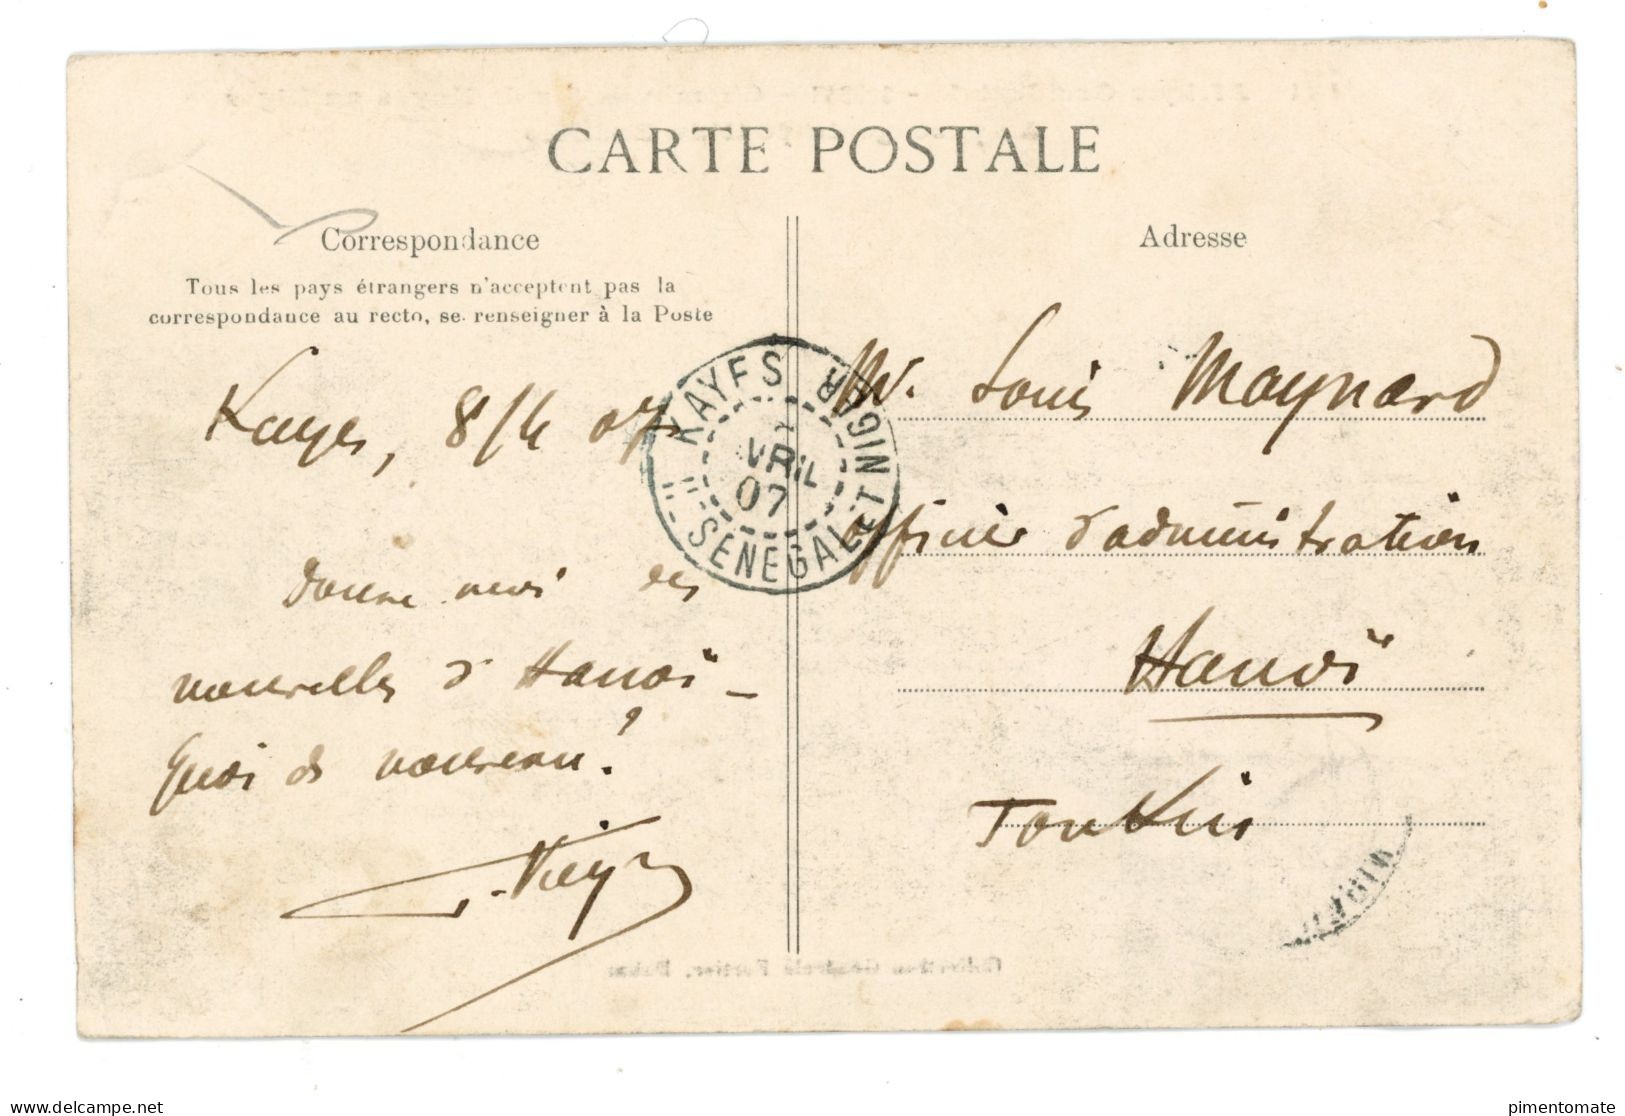 CARTE POSTALE
Correspondance
Tous les pays étrangers n'acceptent pas la
correspondance au recto, se renseigner à la Poste
Adresse
Kayes, 8/4 07
KAYES
AVRIL
07
SENEGAL ET NIGER
donne moi des
nouvelles d'Hanoï –
Quoi de nouveau ?
M. Louis Maynard
officier d'administration
Hanoï
Tonkin
HANOI
Collection Générale Fortier, Dakar
delcampe.net
pimentomate